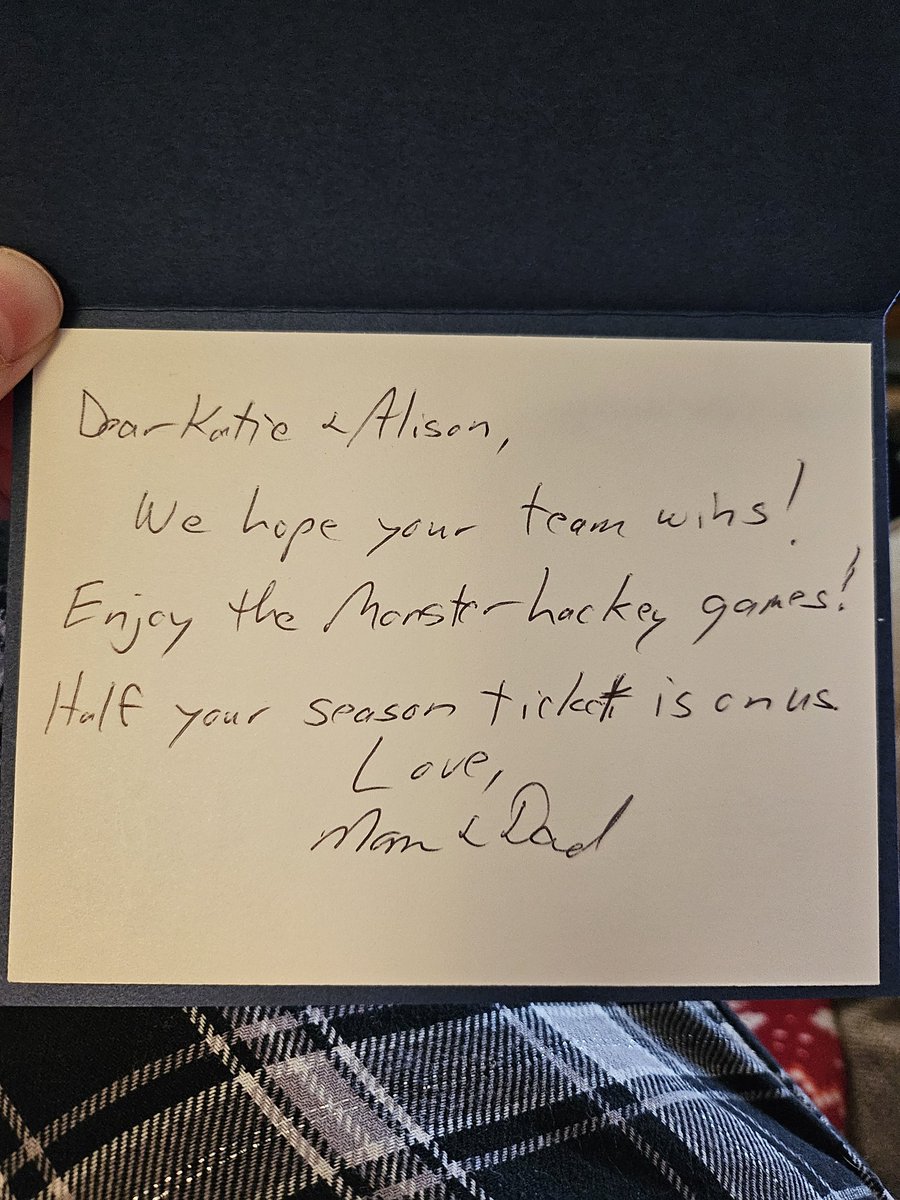 Dear Katie & Alison,
We hope your team wins!
Enjoy the Monster hockey games!
Half your season ticket is on us.
Love,
Mom & Dad